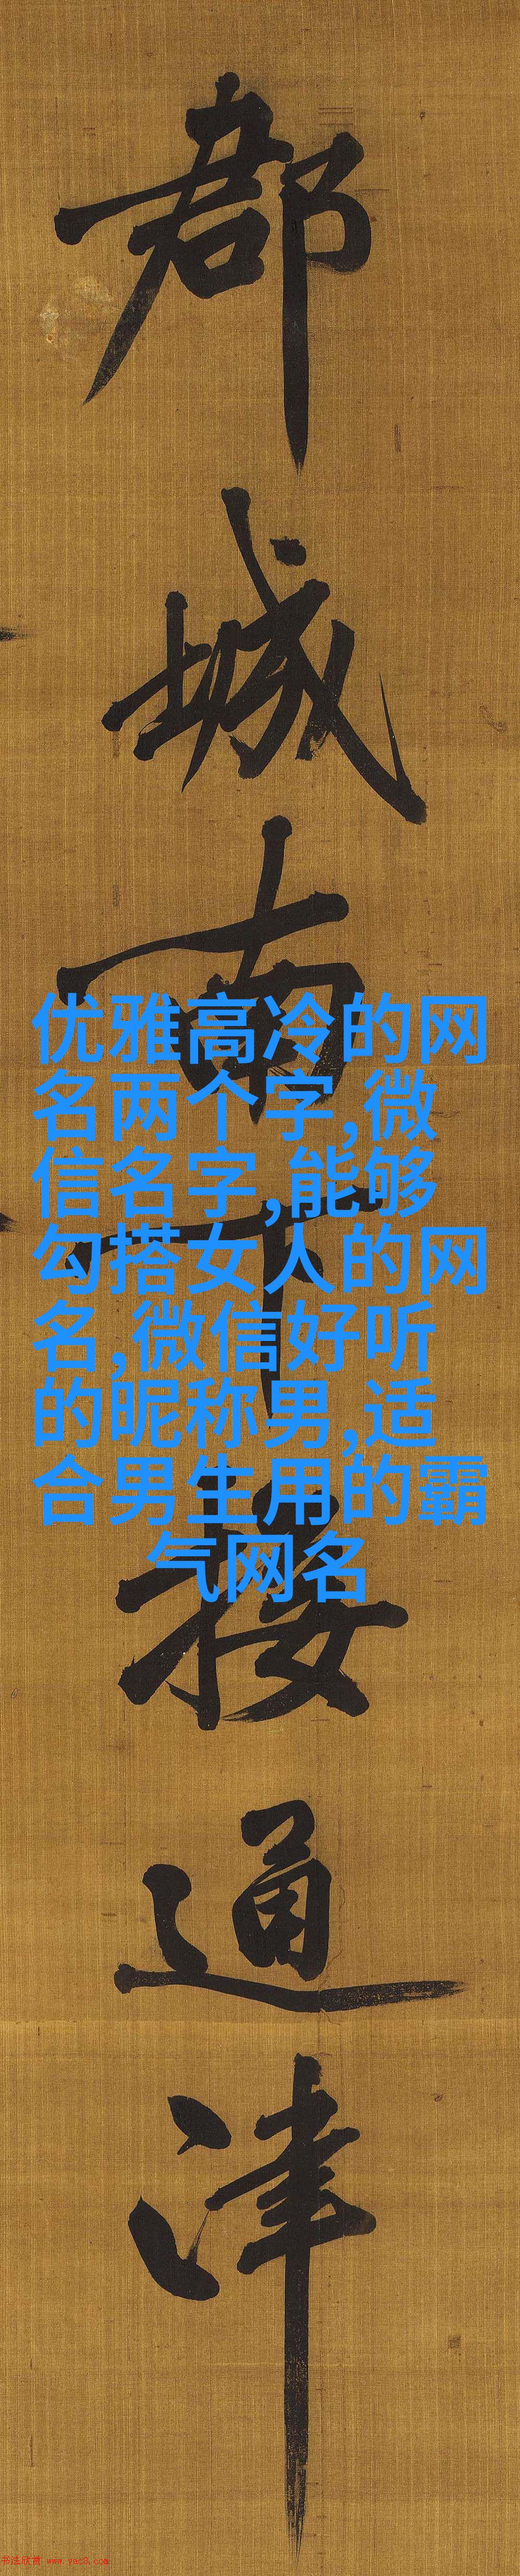 都城南下接通津
优雅高冷的网
名两个字,微
信名字,能够
勾搭女人的网
名,微信好听
的昵称男,适
合男生用的霸
气网名
书法欣赏 www.yac8.com